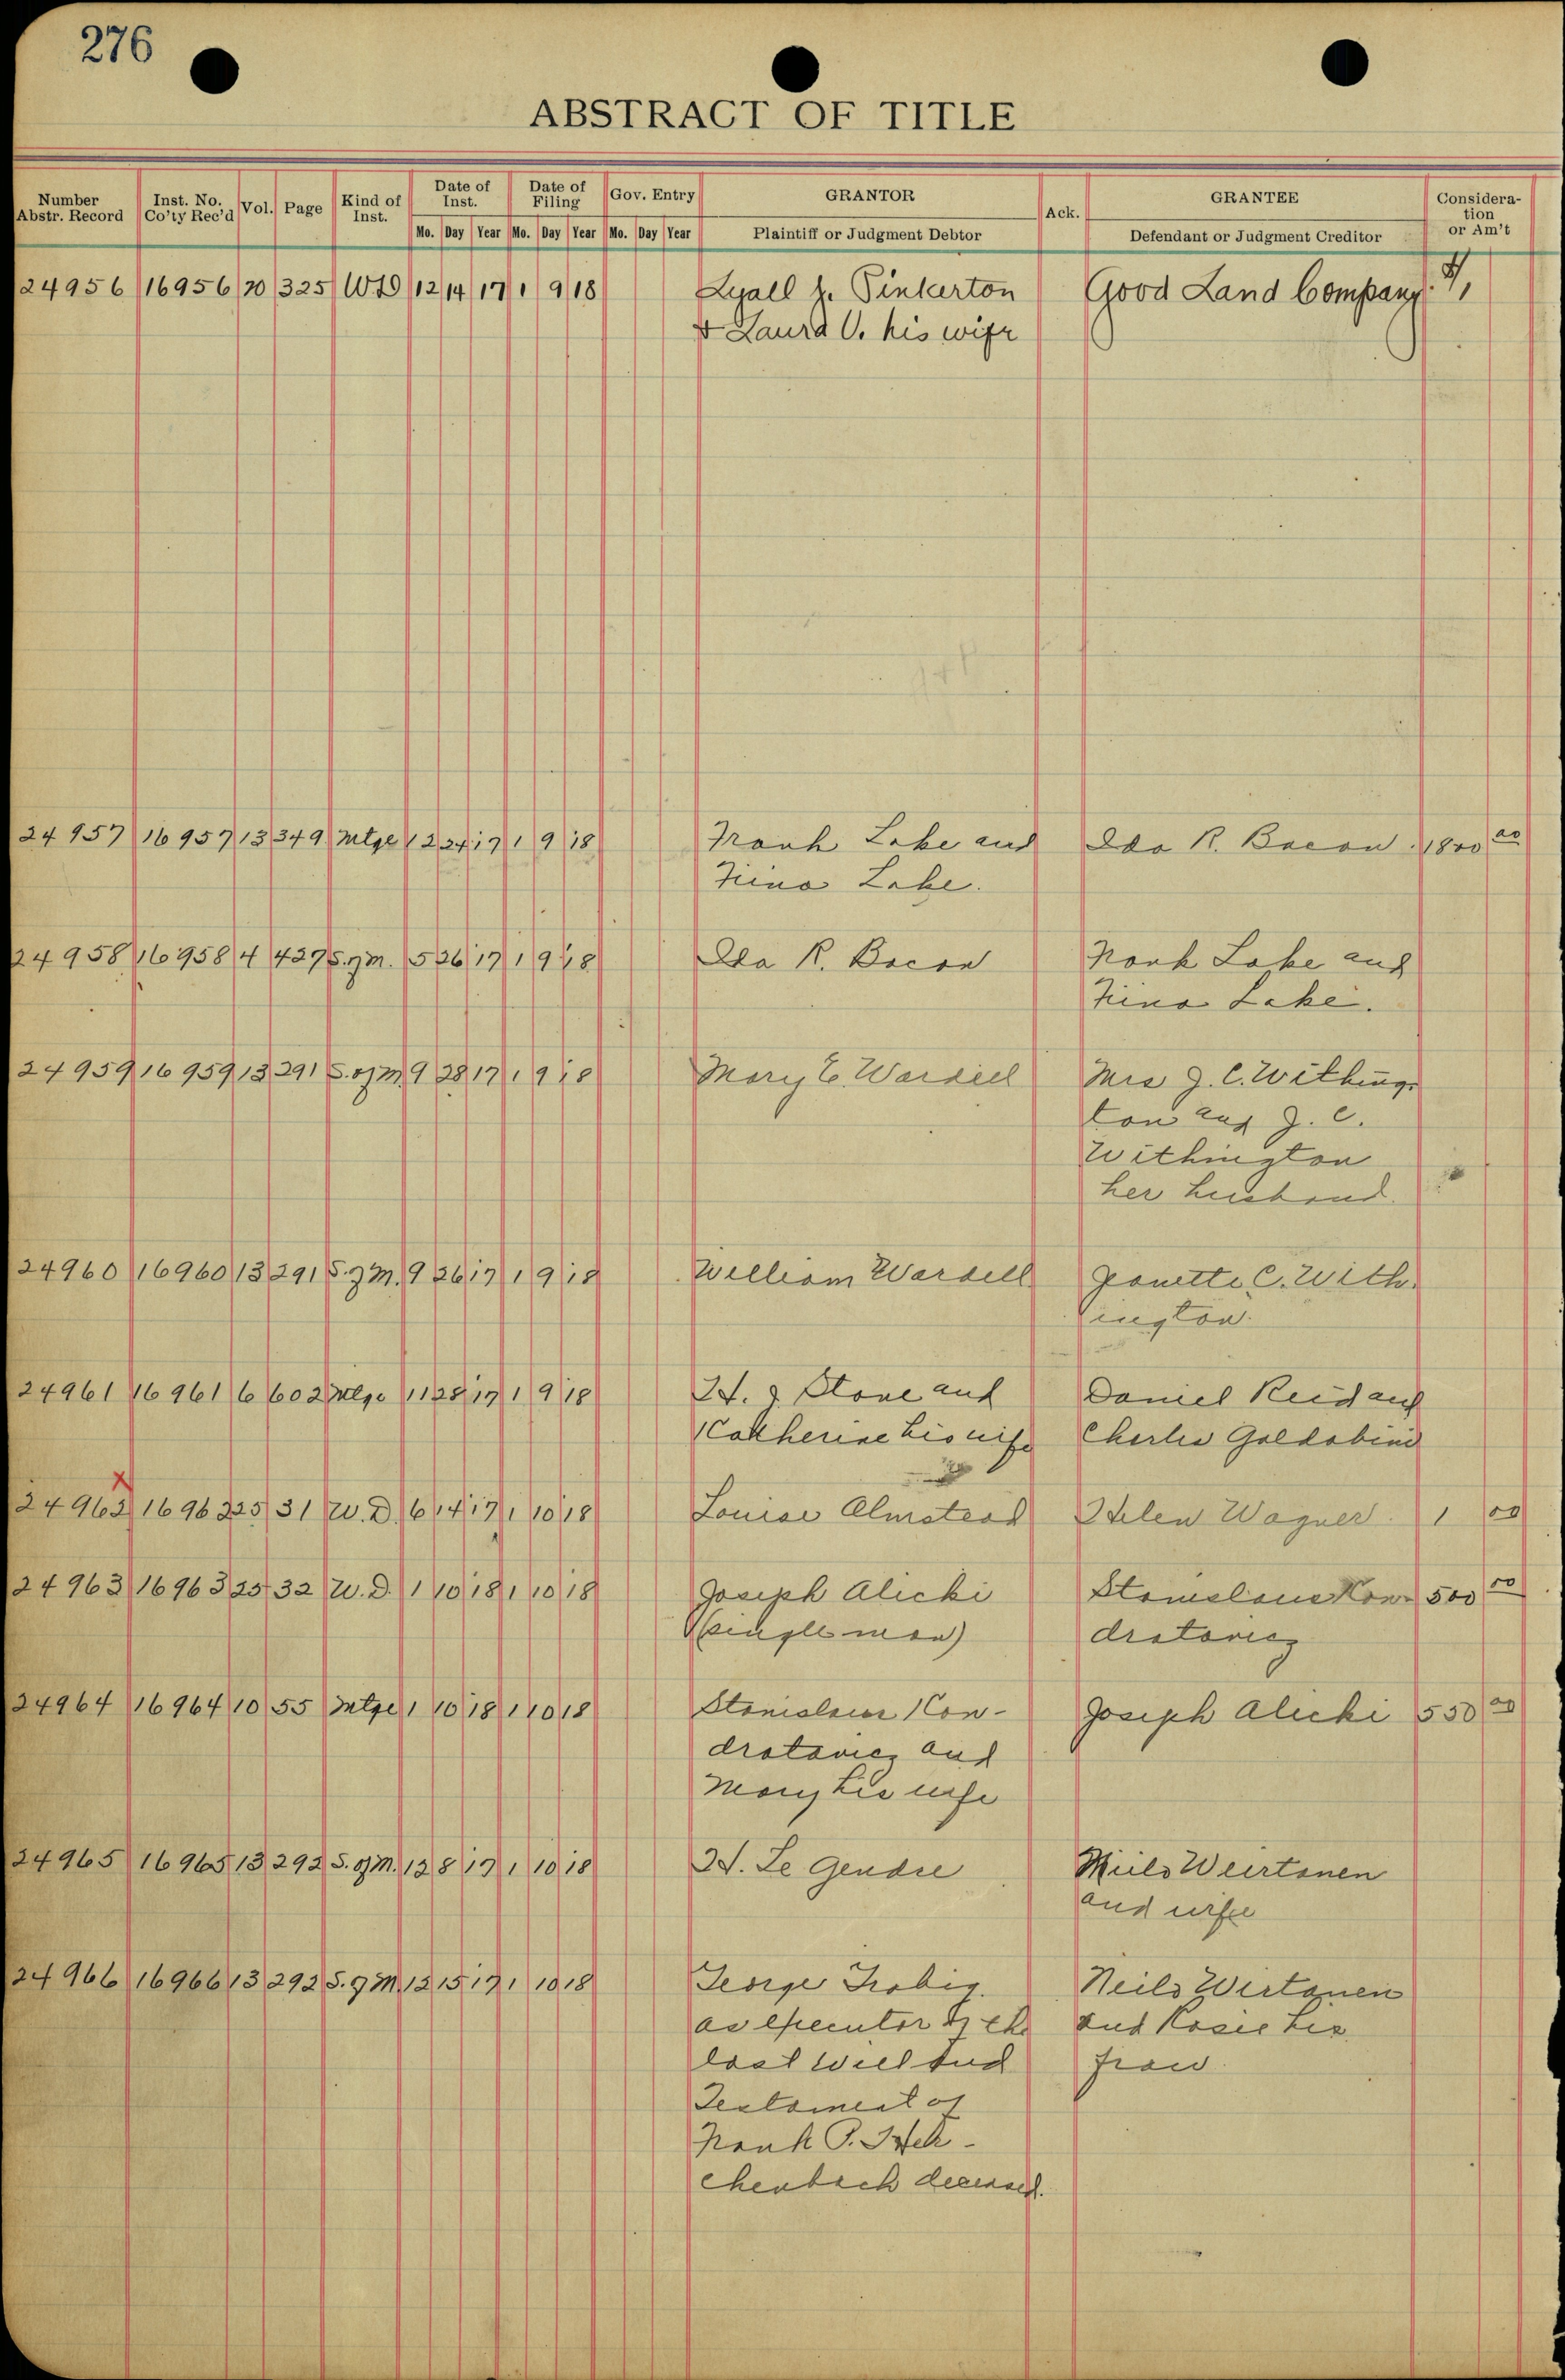 276
ABSTRACT OF TITLE
Number Abstr. Record Inst. No. Co'ty Rec'd Vol. Page Kind of Inst. Date of Inst. Date of Filing Gov. Entry GRANTOR Ack. GRANTEE Consideration or Am't
Mo. Day Year Mo. Day Year Mo. Day Year Plaintiff or Judgment Debtor Defendant or Judgment Creditor
24956 16956 20 325 WD 12 14 17 1 9 18 Lyall Pinkerton Good Land Company $1,
& Laura V. his wife
24957 16957 13 349 Mtge 12 24 17 1 9 18 Frank Lake and Ida R. Bacon 1800 00
Lake.
24958 16958 4 427 S. of M. 5 26 17 1 9 18 Ida R. Bacon Frank Lake and
Lake.
24959 16959 13 291 S. of M 9 28 17 1 9 18 Mary E. Wardell Mrs J. C. Withing-
ton and J. C.
Withington
her husband.
24960 16960 13 291 S. of M. 9 26 17 1 9 18 William Wardell Janette C. With-
ington.
24961 16961 6 602 Mtge 11 28 17 1 9 18 H. J. Stone and Daniel Reid and
Catherine his wife Charles
x
24962 16962 25 31 W. D. 6 14 17 1 10 18 Louise Olmstead Helen Wagner 1 00
24963 16963 25 32 W. D. 1 10 18 1 10 18 Joseph Alicki Stanislaus Kon- 500 00
(single man) dratovicz
24964 16964 10 55 Mtge 1 10 18 1 10 18 Stanislaus Kon- Joseph Alicki 550 00
dratovicz and
Mary his wife
24965 16965 13 292 S. of M. 12 8 17 1 10 18 H. Le Gendre Wiertanen
and wife
24966 16966 13 292 S. of M 12 15 17 1 10 18 George Neils Wirtanen
as executor of the and Rosie his
last will and frau
Testament of
Frank P.
chenbach deceased.